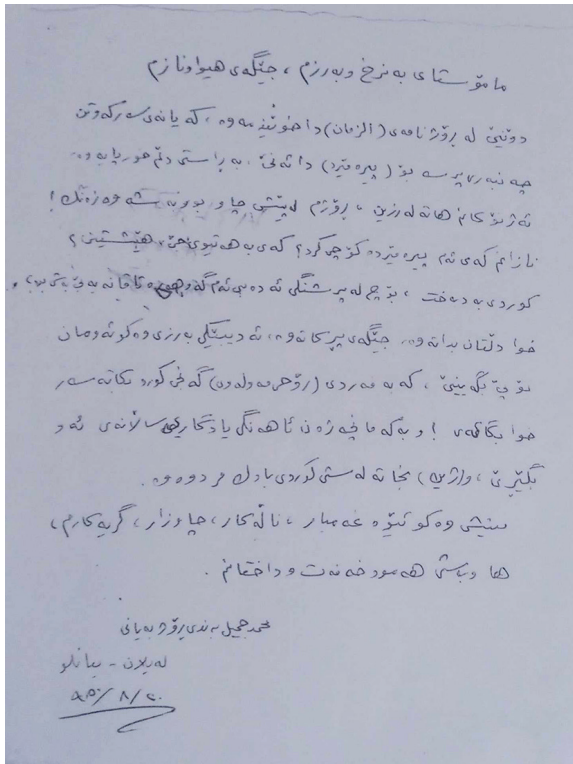 مامۆستای بەنرخ و بەرزم ، جێگەی هیوا و نازم
دوێنێ لە ڕۆژنامەی (الزمان) دا خوێندمەوە ، کە یانەی سەرکەوتن
پرسە بۆ (پیرەمێرد) دائەنێ . بە ڕاستی دڵم خورپایەوە
ئەژنۆکانم هاتە لەرزین ، ڕۆژم لەپێش چاو بوو بە شەوەزەنگ !
نازانم کەی ئەم پیرەمێردە کۆچی کرد ؟ کەی بە هەتیوی جێ هێشتین ؟
کوردی بەدبەخت ، بۆچ لە پرشنگی ئەدەبی ئەم
خوا دڵتان بداتەوە ، جێگەی پڕ بکاتەوە ، ئەدیبێکی بەرزی وەکو ئەومان
بۆ پێ بگەیێنێ ، کە بە مەردی (ڕۆحی مەولەون) گەلی کورد بکاتە سەر
خوا بیکا ! وبەکە ئاهەنگی یادگاریی ساڵانەی ئەو
بگێڕێ ، بخاتە لەشی کوردی باوک مردووەوە .
منیش وەکو ئێوە خەمبار ، ناڵەکار ، چاوزار ، گریەکارم ،
هاوبەشی هەموو خەفەت و داختانم .
محمد جمیل بەندی ڕۆژبەیانی
لەیلان - بیانلو
٩٥٠/٨/٢٠